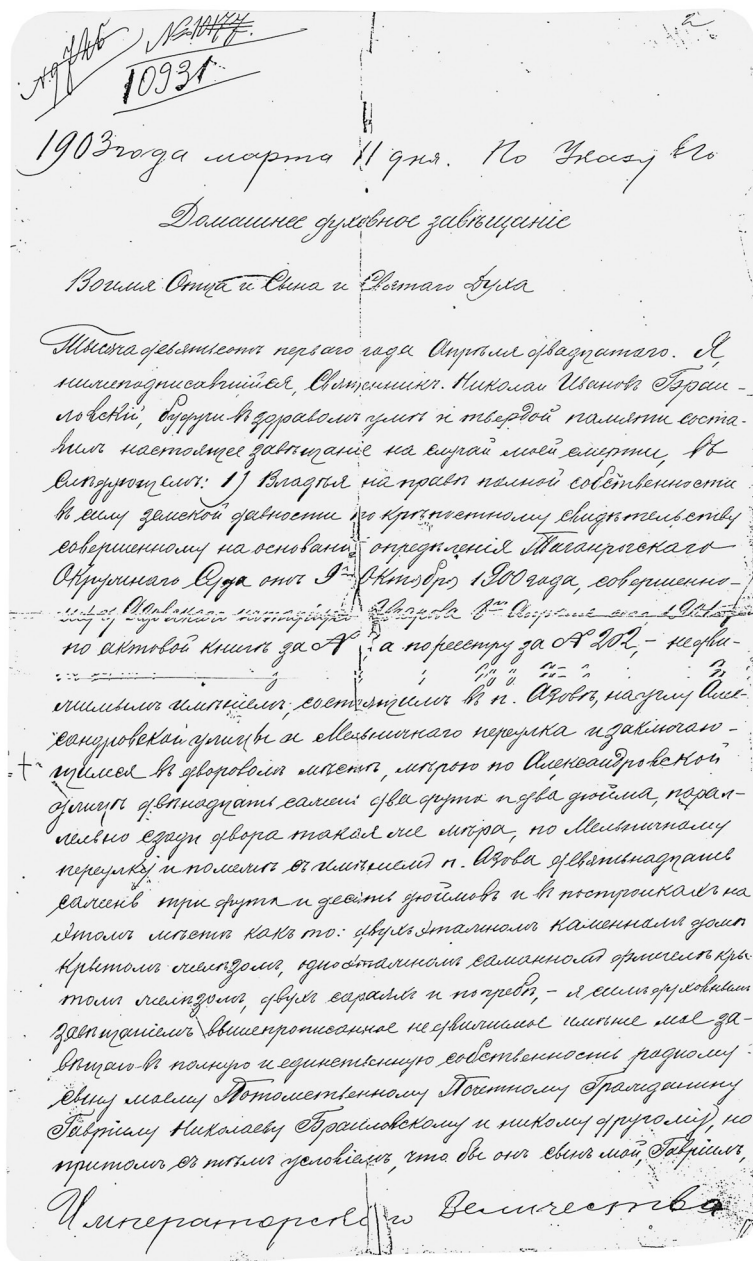 № 1077
10931
1903 года марта 11 дня. По Указу Его
Домашнее духовное завѣщаніе
Во имя Отца и Сына и Святаго Духа
Тысяча девятьсотъ перваго года Апрѣля двадцатаго. Я,
нижеподписавшійся, Священникъ Николай Ивановъ Браи-
ловскій, будучи въ здравомъ умѣ и твердой памяти соста-
вилъ настоящее завѣщаніе на случай моей смерти, въ
слѣдующемъ: 1) Владѣя на правѣ полной собственности
въ силу земской давности по крѣпостному свидѣтельству
совершенному на основаніи опредѣленія Таганрогскаго
Окружнаго Суда отъ 9го Октября 1900 года, совершенно-
по актовой книгѣ за № а по реестру за № 202, – недви-
жимымъ имѣніемъ, состоящимъ въ п. Азовѣ, на углу Алек-
сандровской улицы и Мельничнаго переулка и заключаю-
щимся въ дворовомъ мѣстѣ, мѣрою по Александровской
улицѣ двѣнадцать сажень два фута и два дюйма, парал-
лельно сзади двора такая же мѣра, по Мельничному
переулку и помежъ съ имѣніемъ п. Азова девятьнадцать
сажень три фута и десять дюймовъ и въ постройкахъ на
этомъ мѣстѣ какъ то: двухъэтажномъ каменномъ домѣ
крытомъ желѣзомъ, одноэтажномъ саманномъ флигелѣ кры-
томъ желѣзомъ, двухъ сараяхъ и погребѣ, – я симъ духовнымъ
завѣщаніемъ вышепрописанное недвижимое имѣніе мое за-
вѣщаю въ полную и единственную собственность родному
сыну моему Потомственному Почетному Гражданину
Гавріилу Николаеву Браиловскому и никому другому, но
притомъ съ тѣмъ условіемъ, что бы онъ сынъ мой, Гавріилъ,
Императорскаго Величества